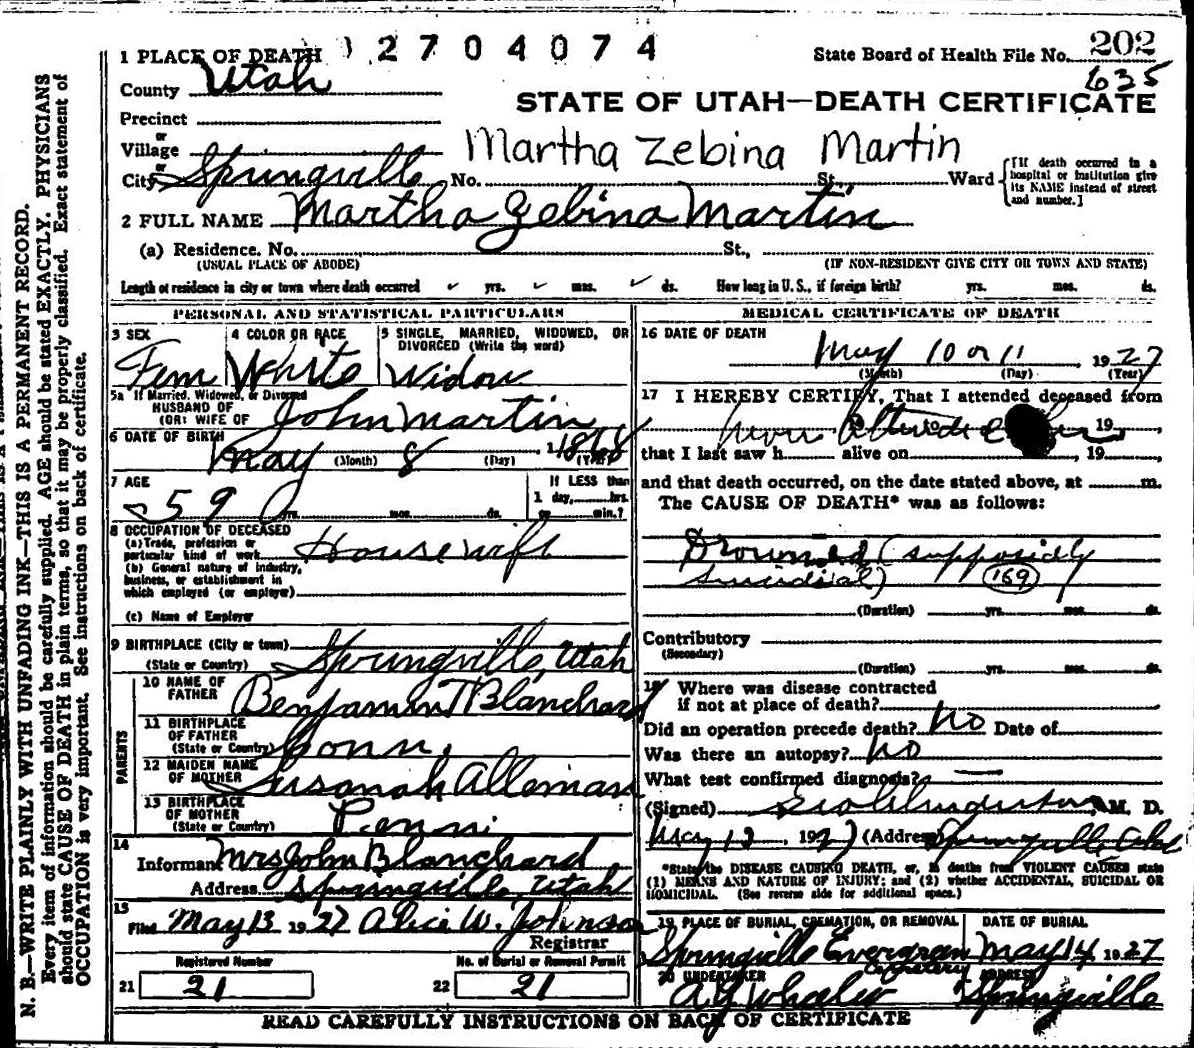 N. B.—WRITE PLAINLY WITH UNFADING INK—THIS IS A PERMANENT RECORD.
Every item of information should be carefully supplied. AGE should be stated EXACTLY. PHYSICIANS
should state CAUSE OF DEATH in plain terms, so that it may be properly classified. Exact statement of
OCCUPATION is very important. See instructions on back of certificate.
2704074
1 PLACE OF DEATH
State Board of Health File No. 202
635
County Utah
STATE OF UTAH—DEATH CERTIFICATE
Precinct
or
Village
Martha Zebina Martin
or
City Springville No. St., Ward
[If death occurred in a
hospital or institution give
its NAME instead of street
and number.]
2 FULL NAME Martha Zebina Martin
(a) Residence. No. St.,
(USUAL PLACE OF ABODE) (IF NON-RESIDENT GIVE CITY OR TOWN AND STATE)
Length of residence in city or town where death occurred yrs. mos. ds. How long in U. S., if foreign birth? yrs. mos. ds.
PERSONAL AND STATISTICAL PARTICULARS
3 SEX 4 COLOR OR RACE 5 SINGLE, MARRIED, WIDOWED, OR
DIVORCED (Write the word)
Fem White Widow
5a If Married, Widowed, or Divorced
HUSBAND OF
(OR) WIFE OF John Martin
6 DATE OF BIRTH
May 8 1868
(Month) (Day) (Year)
7 AGE
59 yrs. mos. ds.
If LESS than
1 day, hrs.
or min.?
8 OCCUPATION OF DECEASED
(a) Trade, profession or
particular kind of work Housewife
(b) General nature of industry,
business, or establishment in
which employed (or employer)
(c) Name of Employer
9 BIRTHPLACE (City or town)
(State or Country) Springville, Utah
PARENTS
10 NAME OF
FATHER Benjamin T Blanchard
11 BIRTHPLACE
OF FATHER
(State or Country) Conn.
12 MAIDEN NAME
OF MOTHER Susanah Alleman
13 BIRTHPLACE
OF MOTHER
(State or Country) Penn.
14
Informant Mrs John Blanchard
Address Springville, Utah
15
Filed May 13 1927 Alice W. Johnson
Registrar
Registered Number No. of Burial or Removal Permit
21 21 22 21
MEDICAL CERTIFICATE OF DEATH
16 DATE OF DEATH
May 10 or 11 1927
(Month) (Day) (Year)
17 I HEREBY CERTIFY, That I attended deceased from
19 to 19
that I last saw h alive on , 19
and that death occurred, on the date stated above, at m.
The CAUSE OF DEATH* was as follows:
Drowned (supposidly
suicidial) 169
(Duration) yrs. mos. ds.
Contributory
(Secondary)
(Duration) yrs. mos. ds.
18 Where was disease contracted
if not at place of death?
Did an operation precede death? No Date of
Was there an autopsy? No
What test confirmed diagnosis? —
(Signed) M. D.
May 12, 1927 (Address) Springville Utah
*State the DISEASE CAUSING DEATH, or, in deaths from VIOLENT CAUSES state
(1) MEANS AND NATURE OF INJURY; and (2) whether ACCIDENTAL, SUICIDAL OR
HOMICIDAL. (See reverse side for additional space.)
19 PLACE OF BURIAL, CREMATION, OR REMOVAL DATE OF BURIAL
Springville Evergreen May 14 1927
Cemetery
20 UNDERTAKER ADDRESS
A Y Wheeler Springville
READ CAREFULLY INSTRUCTIONS ON BACK OF CERTIFICATE